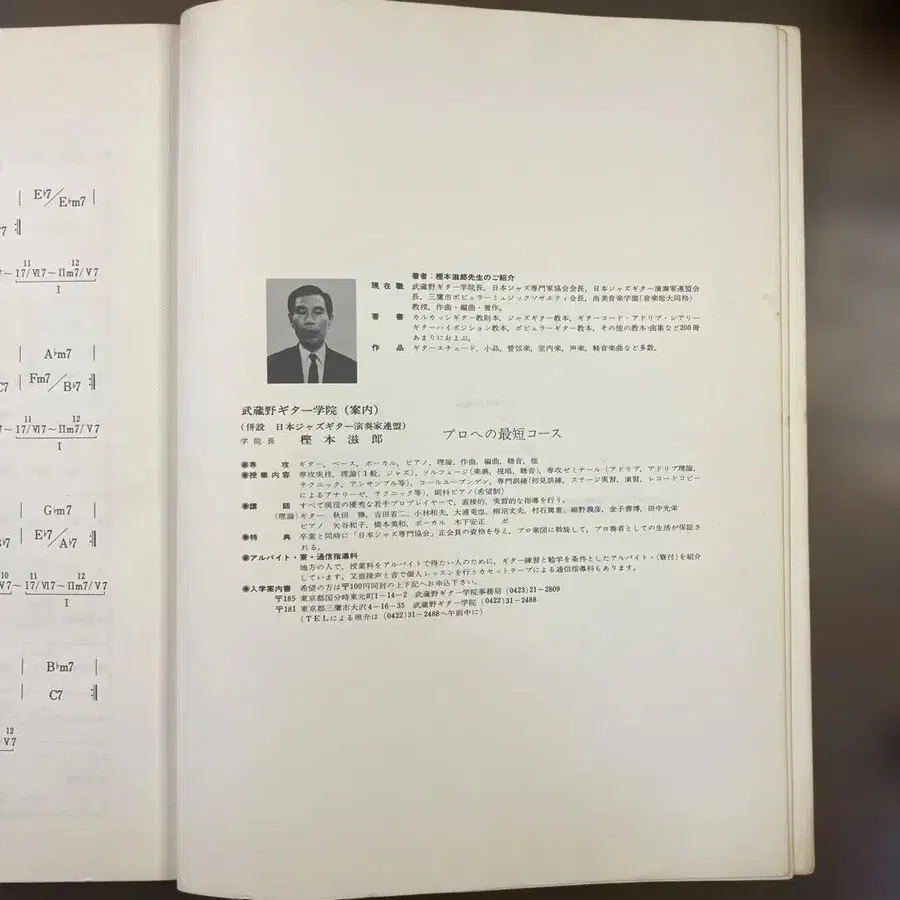 E♭7/E♭m7
7
11 12
7～I7/Ⅵ7～Ⅱm7/Ⅴ7
I
A♭m7
C7 Fm7/B♭7
11 12
7～I7/Ⅵ7～Ⅱm7/Ⅴ7
I
G♭m7
♭7 E♭7/A♭7
10 11 12
Ⅴ7～I7/Ⅵ7～Ⅱm7/Ⅴ7
I
B♭m7
C7
12
Ⅴ7
著者：樫本滋郎先生のご紹介
現在職 武蔵野ギター学院長、日本ジャズ専門家協会会長、日本ジャズギター演奏家連盟会
長、三鷹市ポピュラーミュジックソサエティ会長、尚美音楽学園(音楽短大同格)
教授、作曲・編曲・著作。
著書 カルカッシギター教則本、ジャズギター教本、ギターコード・アドリブ・シアリー
ギターハイポジション教本、ポピュラーギター教本、その他の教本・曲集など200冊
あまりにおよぶ。
作品 ギターエチュード、小品、管弦楽、室内楽、声楽、軽音楽曲など多数。
武蔵野ギター学院（案内）
(併設 日本ジャズギター演奏家連盟)
学院長 樫本滋郎
プロへの最短コース
◉専攻 ギター、ベース、ボーカル、ピアノ、理論、作曲、編曲、聴音、他
◉授業内容 専攻実技、理論(1般、ジャズ)、ソルフェージ(楽典、視唱、聴音)、専攻ゼミナール(アドリブ、アドリブ理論、
テクニック、アンサンブル等)、コールユーブンゲン、専門訓練(初見訓練、ステージ実習、演習、レコードコピー
によるアナリーゼ、テクニック等)、副科ピアノ(希望制)
◉講師 すべて現役の優秀な若手プロプレイヤーで、直接的、実習的な指導を行う。
(理論)ギター 秋田 勝、吉田省二、小林和夫、大浦竜也、柳沼文夫、村石篤重、細野義彦、金子善博、田中光栄
ピアノ 矢谷和子、橋本美和、ボーカル 木下安正 ボ
◉特典 卒業と同時に「日本ジャズ専門協会」正会員の資格を与え、プロ楽団に斡旋して、プロ奏者としての生活が保証さ
れる。
◉アルバイト・寮・通信指導科
地方の人で、授業料をアルバイトで得たい人のために、ギター練習と勉学を条件としたアルバイト・(寮付)を紹介
しています。又直接声と音で個人レッスンを行うカセットテープによる通信指導科もあります。
◉入学案内書 希望の方は〒100円同封の上下記へお申込下さい。
〒185 東京都国分寺東元町1－14－2 武蔵野ギター学院事務局 (0423)21－2809
〒181 東京都三鷹市大沢4－16－35 武蔵野ギター学院 (0422)31－2488
(TELによる照介は (0422)31－2488へ午前中に)